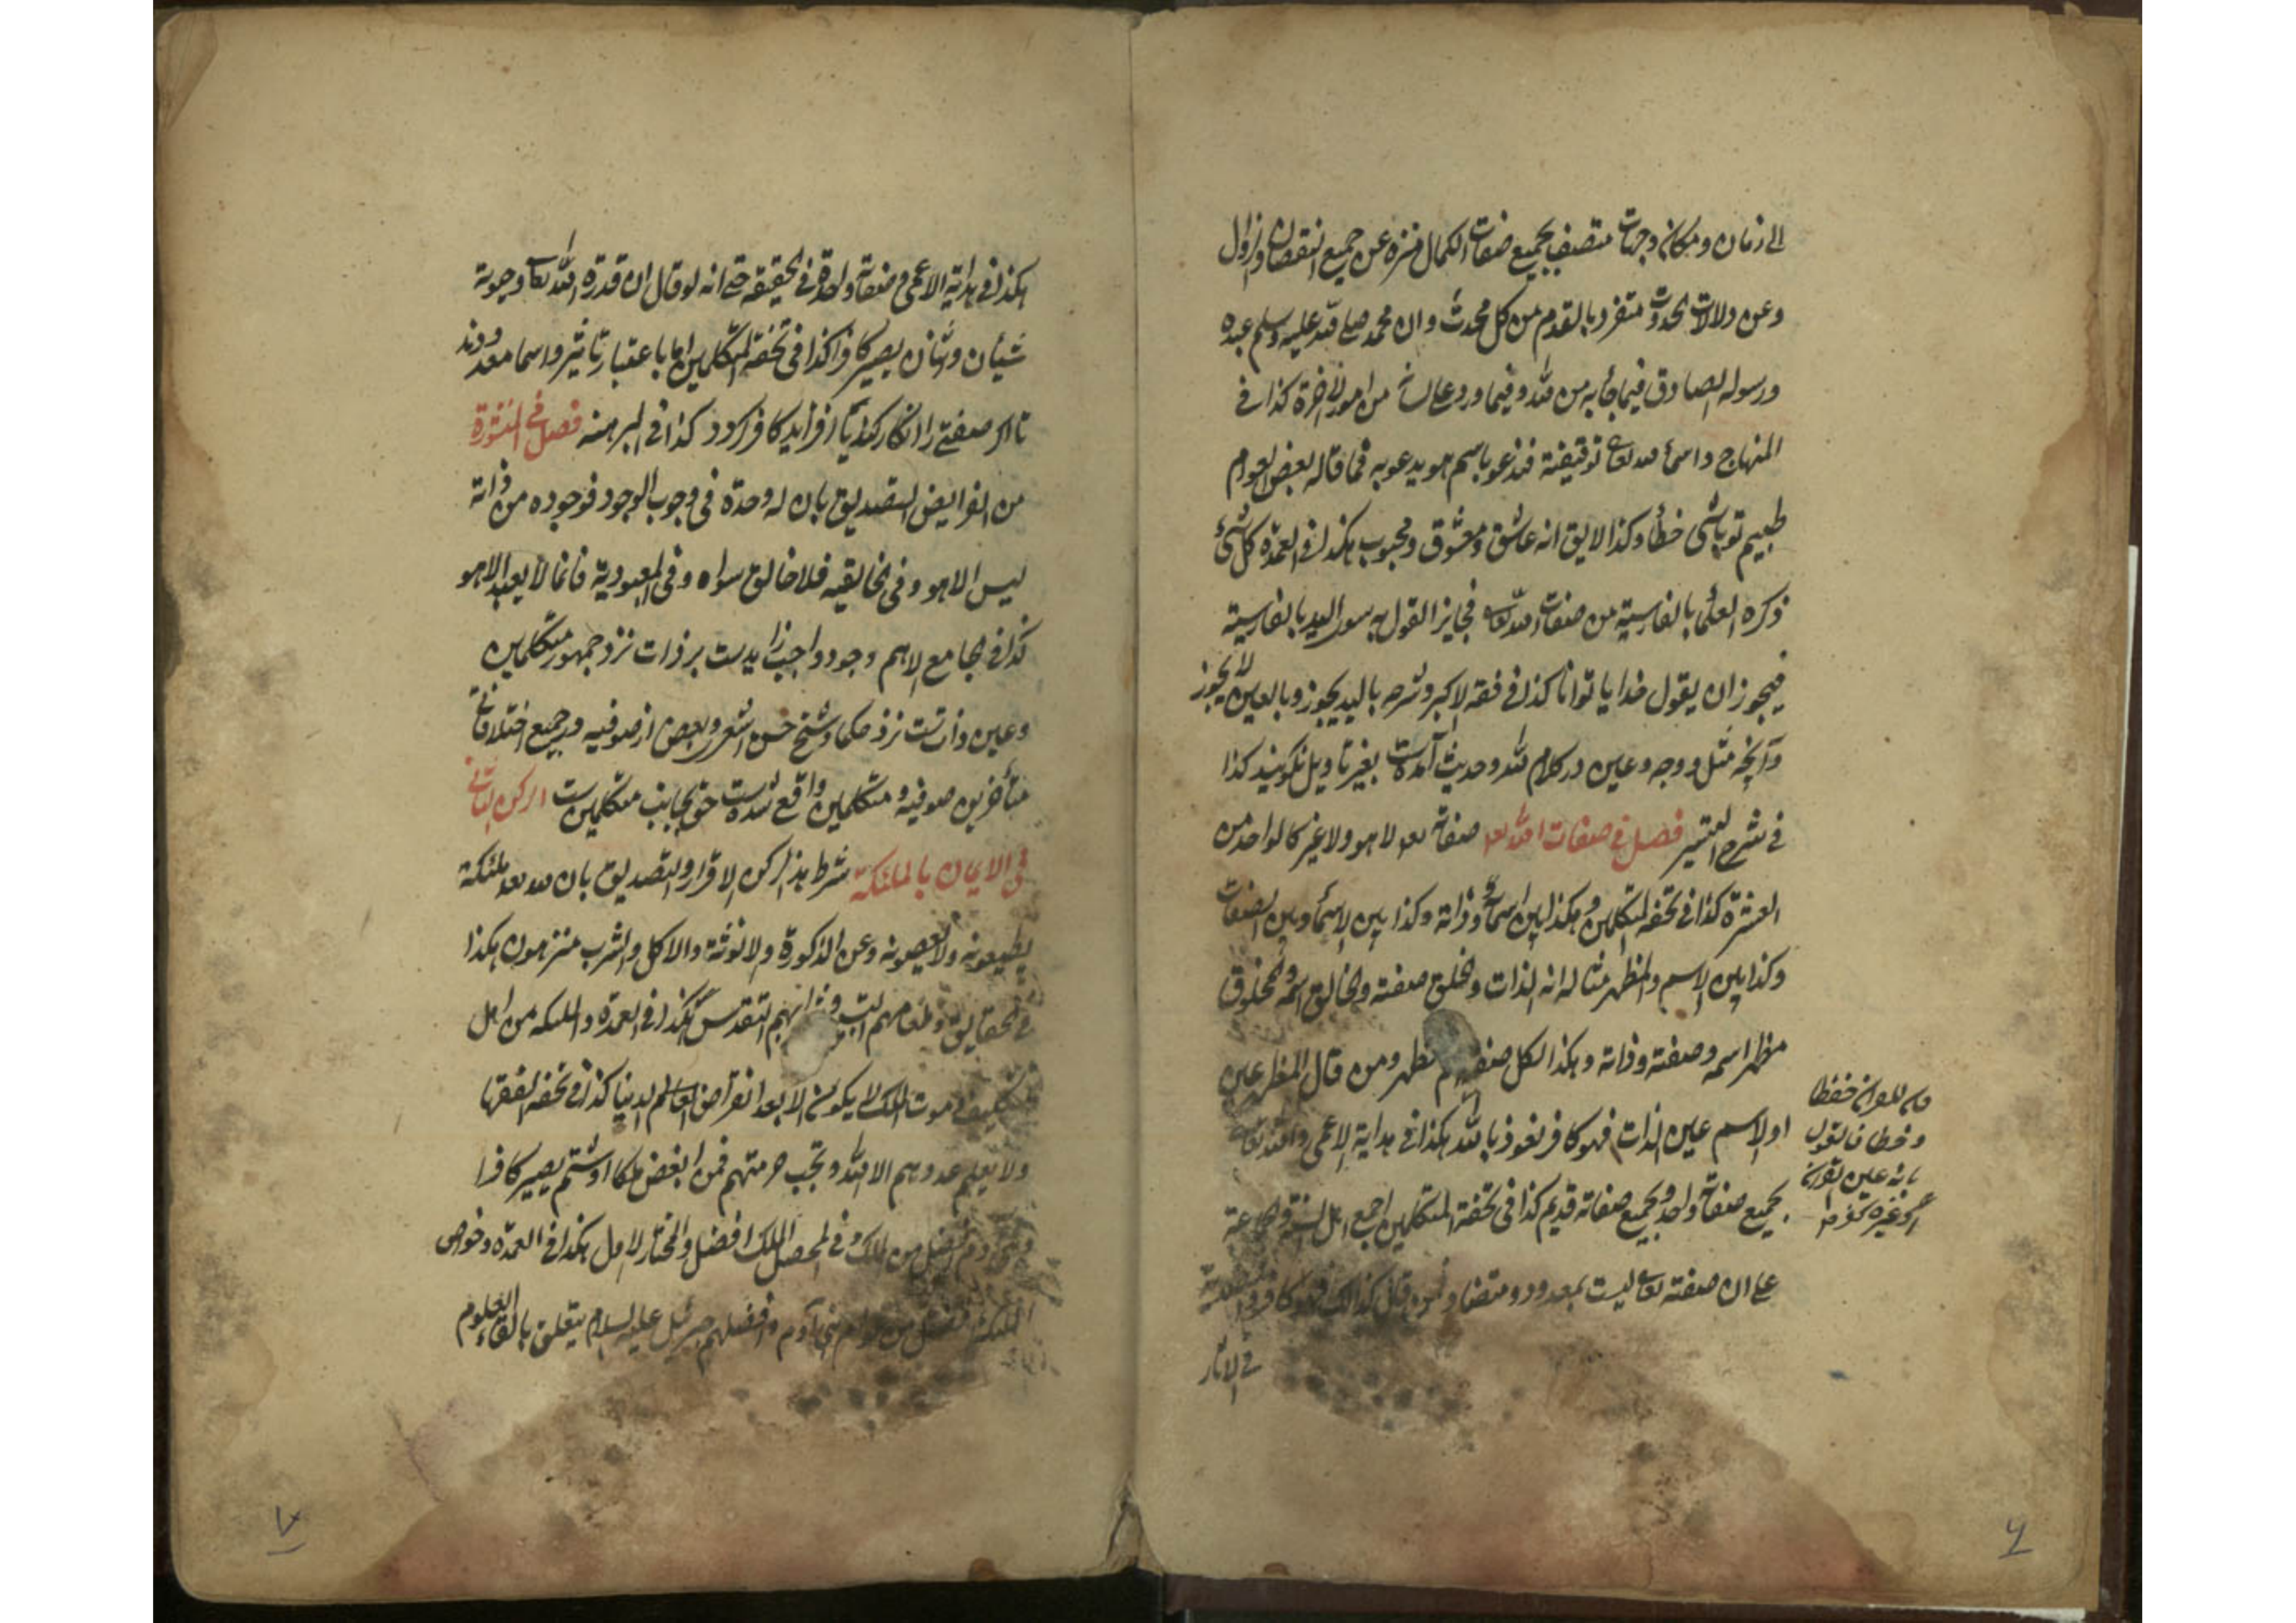 الی زمان و مکان و جهات متصف بجمیع صفات الکمال منزه عن جمیع النقصان و الزوال
و عن دلالات الحدوث متفرد بالقدم من کل محدث و ان محمد صلی الله علیه وسلم عبده
و رسوله الصادق فیما جأ به من الله و فیما ورد علی لسانه من امور الاخرة کذا فی
المنهاج و اسمأ الله تعا توقیفیة فندعو باسم هو یدعو به فما قاله بعض العوام
طبیبم تو باشی خطأ و کذا لا یلیق انه عاشق و معشوق و محبوب هکذا فی العمدة کل شئ
ذکره العلمأ بالفارسیة من صفات الله تعا فجایز القول به سوی الید بالفارسیة
فیجوز ان یقول خدایا توانا کذا فی فقه الاکبر و شرحه بالید یجوز و بالعین لا یجوز
و آنچه مثل و وجه و عین در کلام الله و حدیث آمدست بغیر تأویل نگویند کذا
فی شرح التیسیر فصل فی صفات الله تعا صفاته تعا لا هو و لا غیر کالواحد من
العشرة کذا فی تحفة المتکلمین و هکذا بین اسمائه و ذاته و کذا بین الاسمأ و بین الصفات
و کذا بین الاسم و المظهر مثاله انه الذات و الخلق صفته و الخالق اسمه و المخلوق
مظهر اسمه و صفته و ذاته و هکذا لکل صفة مظهر و من قال المظهر عین
او الاسم عین الذات فهو کافر نعوذ بالله هکذا فی هدایة الاعمی و الله تعا
بجمیع صفاته واحد و بجمیع صفاته قدیم کذا فی تحفة المتکلمین اجمع اهل السنة و الجماعة
علی ان صفته تعا لیست بمعدود و متضاد و من قال کذالک فهو کافر
فی الآثار
خفظا
بانه عین
او غیره
۶
هکذا فی هدایة الاعمی و صفاته واحدة فی الحقیقة حتی انه لو قال ان قدرة الله تعا و حیوته
شیأن و شأن یصیر کافرا کذا فی تحفة المتکلمین اما باعتبار تأثیر و اسما معدودند
تا اگر صفتی را انکار کند یا زفزاید کافر گردد کذا فی البرهنه فصل فی
من الفرایض التصدیق بان له وحدة فی وجوب الوجود فوجوده من ذاته
لیس الا هو و فی الخالقیه فلا خالق سواه و فی المعبودیة فانما لا یعبد الا هو
کذا فی الجامع الاهم وجود واجب زایدست بر ذات نزد جمهور متکلمین
و عین ذاتست نزد حکما و شیخ حسن اشعری و بعض از صوفیه و جمیع اختلافات
متأخرین صوفیه و متکلمین واقع شدست حق بجانب متکلمین ست الرکن الثانی
فی الایمان بالملئکة شرط هذا الرکن الاقرار و التصدیق بان لله تعا ملئکة
یطیعونه و لا یعصونه و عن الذکورة و الانوثة و الاکل و الشرب منزهون هکذا
فی الحقایق و طعامهم التسبیح و شرابهم التقدیس هکذا فی العمدة و الملئکه من اهل
التکلیف موت الملک لا یکون الا بعد انقراض العالم الدنیا کذا فی تحفة الفقها
و لا یعلم عددهم الا الله و تجب حرمتهم فمن ابغض ملکا او شتم یصیر کافرا
افضل من الملک و فی المحصل الملک افضل و المختار الاول هکذا فی العمدة و خواص
الملئکة افضل من عوام بنی آدم و افضلهم جبرئیل علیه السلام یتعلق بالقاء العلوم
۷